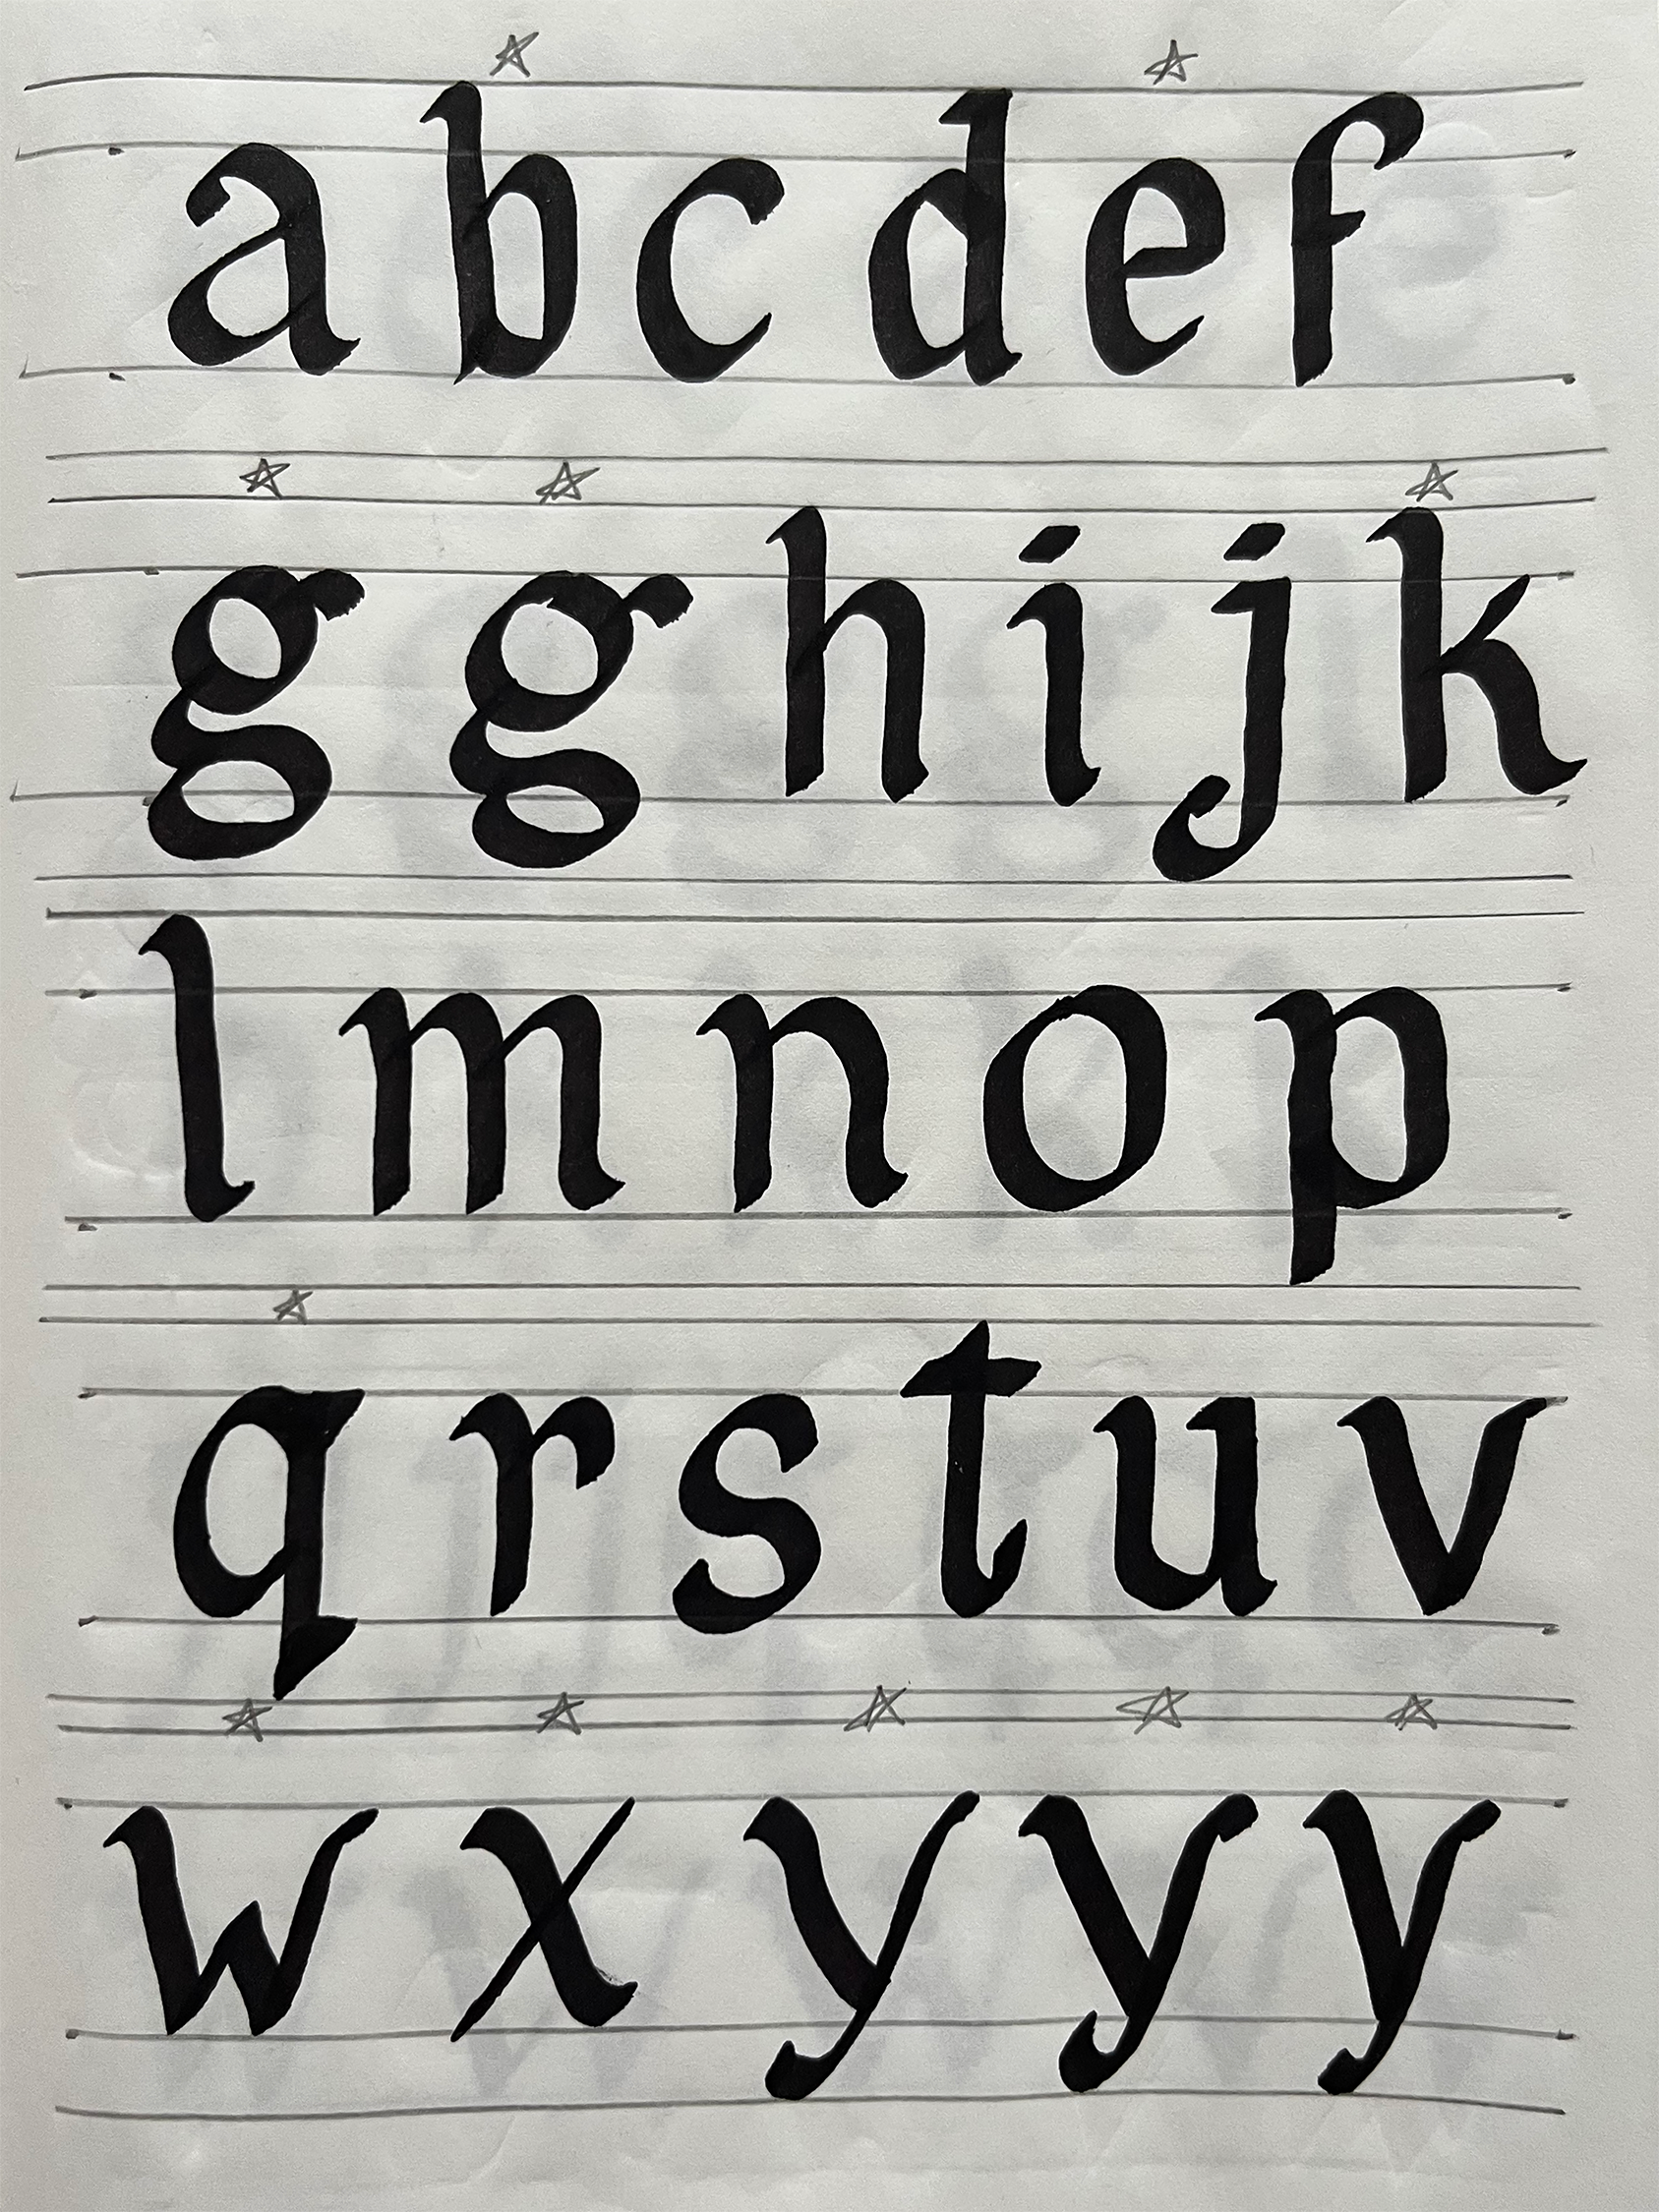 a b c d e f
g g h i j k
l m n o p
q r s t u v
w x y y y